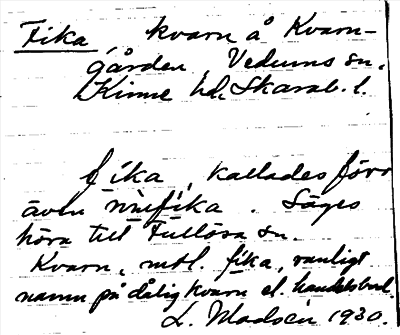 Fika, kvarn å Kvarn-
gården, Vedums sn,
Kinne hd, Skarab. l.
fika, kallades förr
även nufika. Säges
höra till Fullösa sn.
Kvarn, motl. fika, vanligt
namn på dålig kvarn el. handelsbod.
L. Madsén 1930.